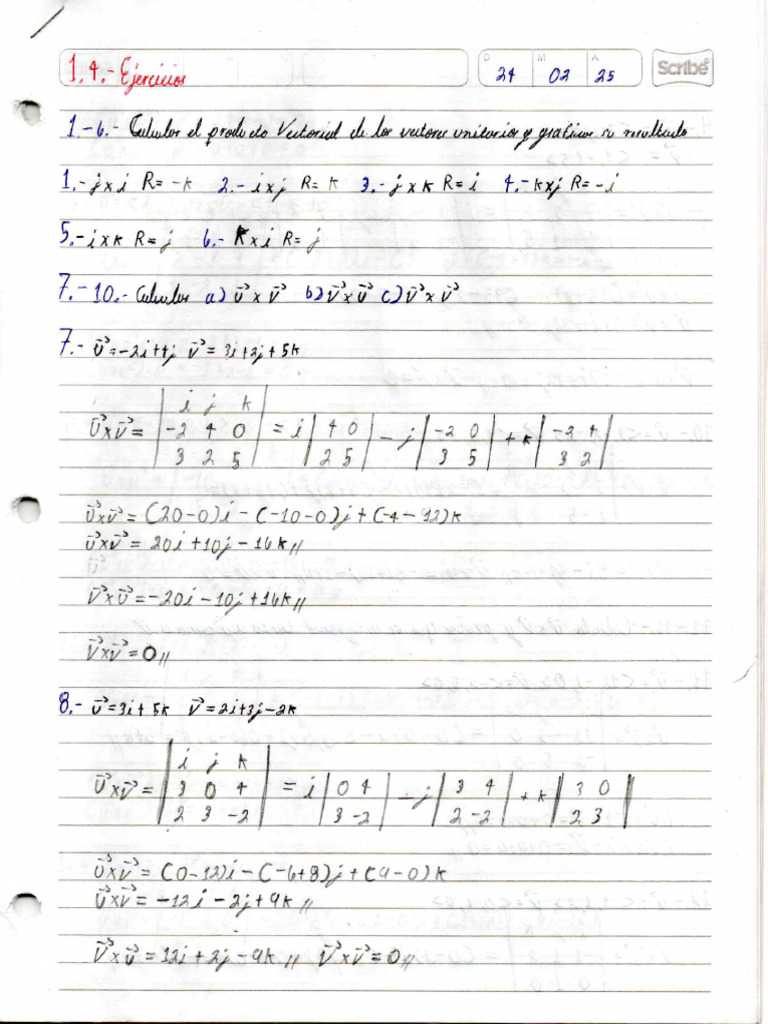 1.4.- Ejercicios
D M A
24 02 25
Scribe
1.-6.- Calcular el producto Vectorial de los vectores unitarios y graficar su resultado
1.- j x i R= -k 2.- i x j R= k 3.- j x k R= i 4.- k x j R= -i
5.- i x k R= j 6.- k x i R= j
7.-10.- Calcular a) u⃗ x v⃗ b) v⃗ x u⃗ c) v⃗ x v⃗
7.- u⃗=-2i+4j v⃗= 3i+2j+5k
i j k
u⃗xv⃗= | -2 4 0 | = i | 4 0 | - j | -2 0 | + k | -2 4 |
3 2 5 2 5 3 5 3 2
u⃗xv⃗=(20-0)i-(-10-0)j+(-4-12)k
u⃗xv⃗= 20i+10j-16k//
v⃗xu⃗=-20i-10j+16k//
v⃗xv⃗=0//
8.- u⃗=3i+5k v⃗=2i+3j-2k
i j k
u⃗xv⃗= | 3 0 4 | = i | 0 4 | - j | 3 4 | + k | 3 0 |
2 3 -2 3 -2 2 -2 2 3
u⃗xv⃗=(0-12)i-(-6+8)j+(9-0)k
u⃗xv⃗=-12i-2j+9k//
v⃗xu⃗=12i+2j-9k// v⃗xv⃗=0//